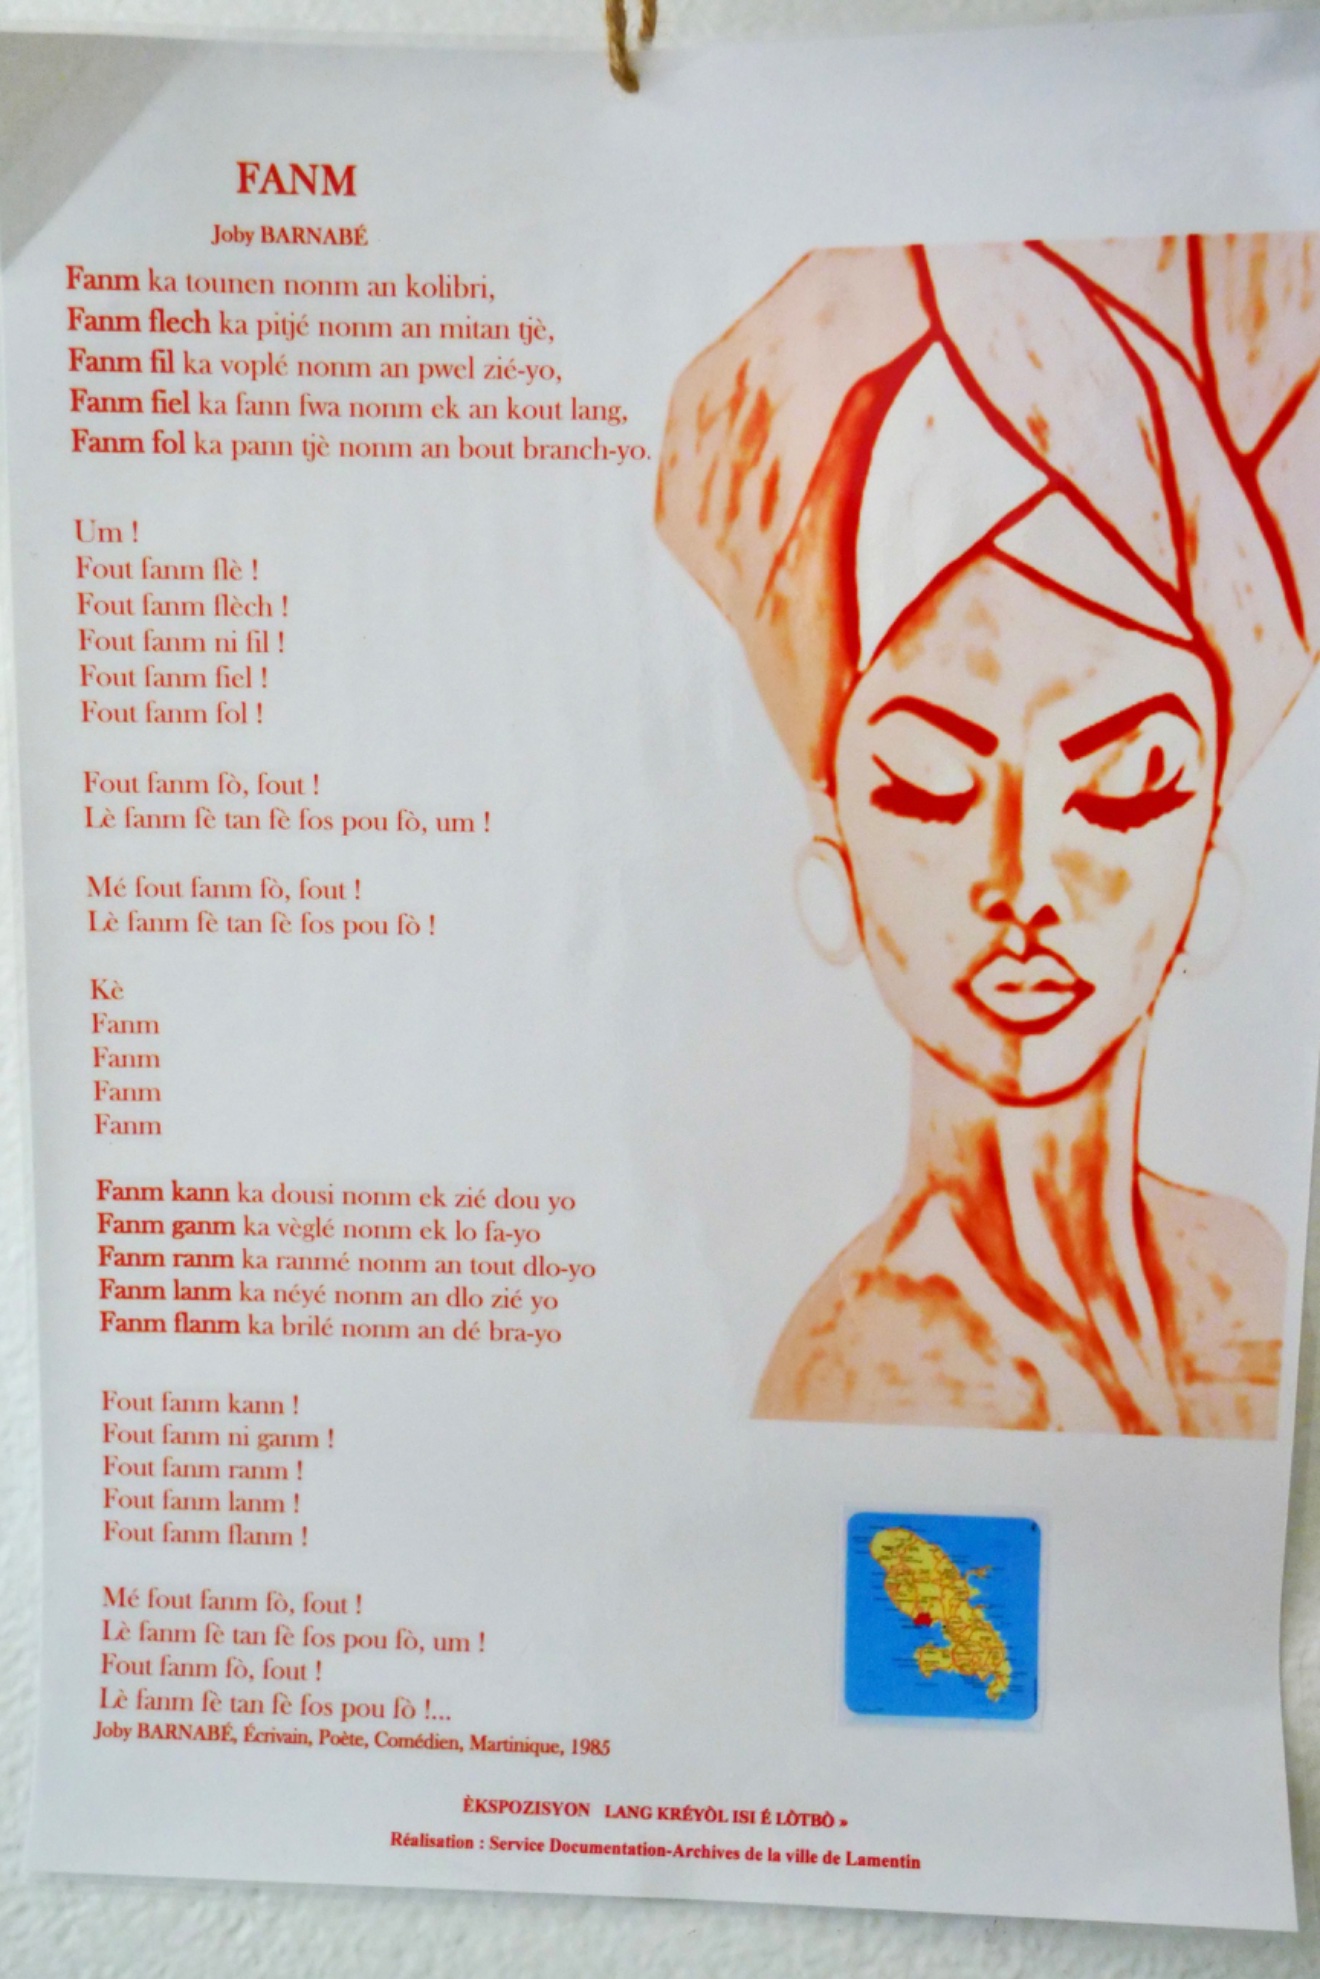 FANM
Joby BARNABÉ
Fanm ka tounen nonm an kolibri,
Fanm flech ka pitjé nonm an mitan tjè,
Fanm fil ka voplé nonm an pwel zié-yo,
Fanm fiel ka fann fwa nonm ek an kout lang,
Fanm fol ka pann tjè nonm an bout branch-yo.
Um !
Fout fanm flè !
Fout fanm flèch !
Fout fanm ni fil !
Fout fanm fiel !
Fout fanm fol !
Fout fanm fò, fout !
Lè fanm fè tan fè fos pou fò, um !
Mé fout fanm fò, fout !
Lè fanm fè tan fè fos pou fò !
Kè
Fanm
Fanm
Fanm
Fanm
Fanm kann ka dousi nonm ek zié dou yo
Fanm ganm ka vèglé nonm ek lo fa-yo
Fanm ranm ka ranmé nonm an tout dlo-yo
Fanm lanm ka néyé nonm an dlo zié yo
Fanm flanm ka brilé nonm an dé bra-yo
Fout fanm kann !
Fout fanm ni ganm !
Fout fanm ranm !
Fout fanm lanm !
Fout fanm flanm !
Mé fout fanm fò, fout !
Lè fanm fè tan fè fos pou fò, um !
Fout fanm fò, fout !
Lè fanm fè tan fè fos pou fò !...
Joby BARNABÉ, Écrivain, Poète, Comédien, Martinique, 1985
ÈKSPOZISYON LANG KRÉYÒL ISI É LÒTBÒ »
Réalisation : Service Documentation-Archives de la ville de Lamentin